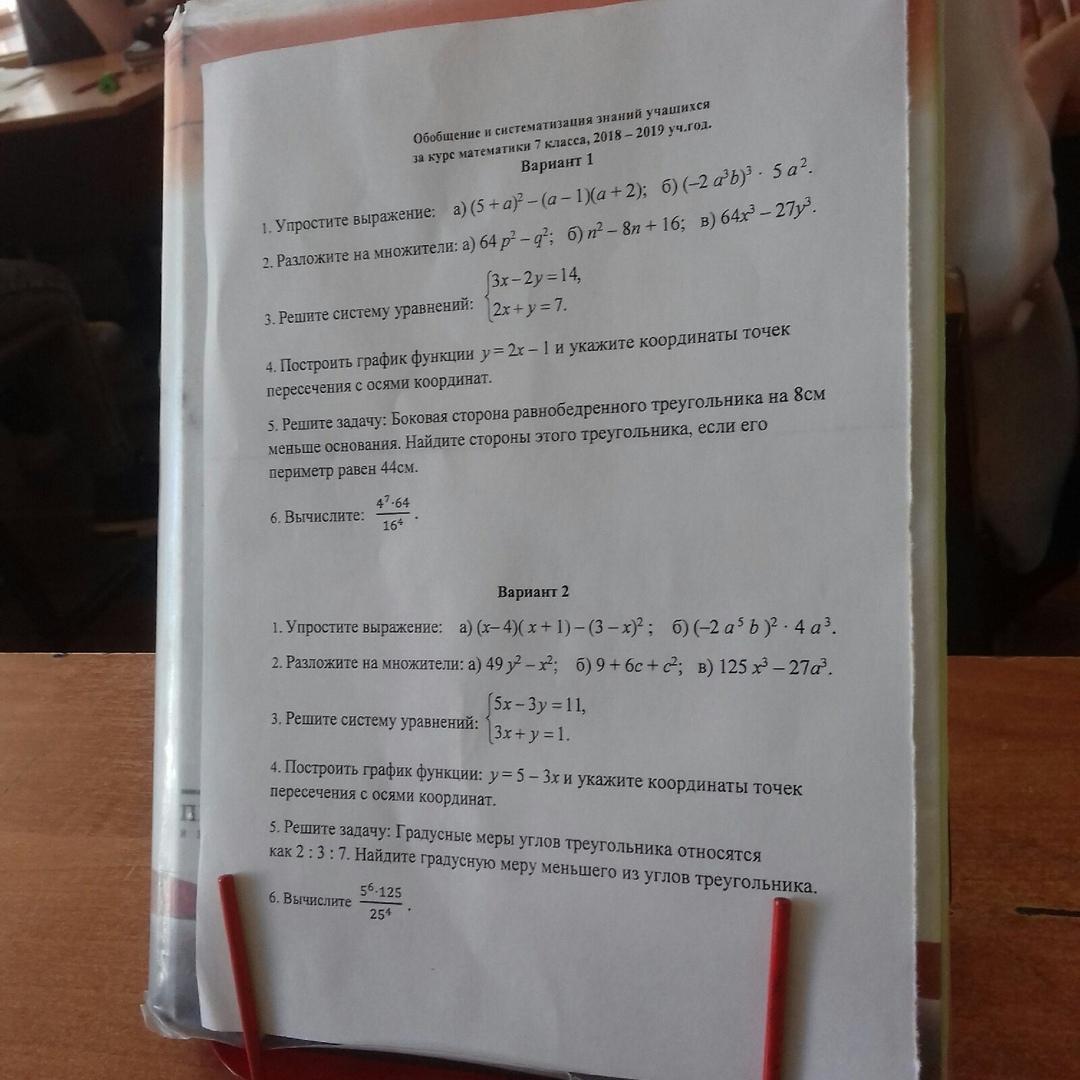 Обобщение и систематизация знаний учащихся
за курс математики 7 класса, 2018 – 2019 уч.год.
Вариант 1
1. Упростите выражение: а) (5 + a)² – (a – 1)(a + 2); б) (–2 a³b)³ · 5 a².
2. Разложите на множители: а) 64 p² – q²; б) n² – 8n + 16; в) 64x³ – 27y³.
3. Решите систему уравнений: {3x – 2y = 14,
2x + y = 7.
4. Построить график функции y = 2x – 1 и укажите координаты точек
пересечения с осями координат.
5. Решите задачу: Боковая сторона равнобедренного треугольника на 8см
меньше основания. Найдите стороны этого треугольника, если его
периметр равен 44см.
6. Вычислите: 4⁷·64/16⁴ .
Вариант 2
1. Упростите выражение: а) (x– 4)( x + 1) – (3 – x)² ; б) (–2 a⁵ b )² · 4 a³.
2. Разложите на множители: а) 49 y² – x²; б) 9 + 6c + c²; в) 125 x³ – 27a³.
3. Решите систему уравнений: {5x – 3y = 11,
3x + y = 1.
4. Построить график функции: y = 5 – 3x и укажите координаты точек
пересечения с осями координат.
5. Решите задачу: Градусные меры углов треугольника относятся
как 2 : 3 : 7. Найдите градусную меру меньшего из углов треугольника.
6. Вычислите 5⁶·125/25⁴ .